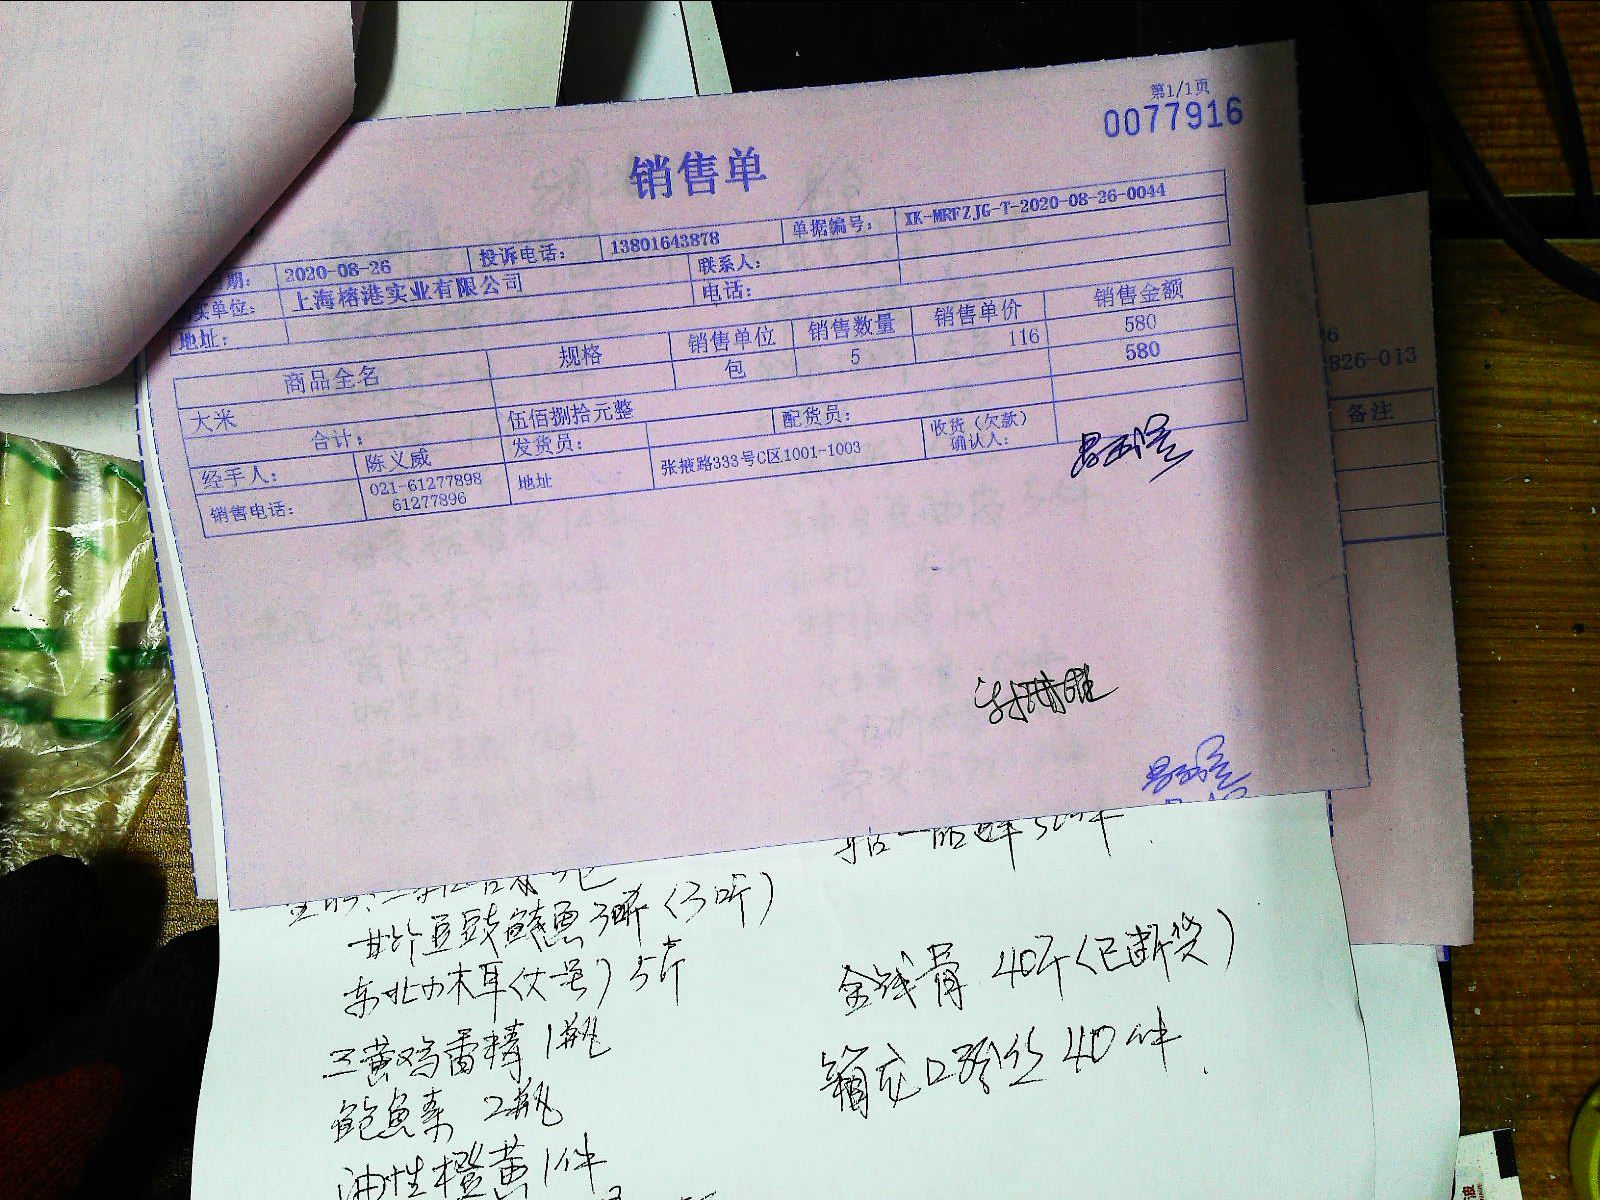 第1/1页
0077916
销售单
期: 2020-08-26 投诉电话: 13801643878 单据编号: XK-MRFZJG-T-2020-08-26-0044
买单位: 上海榕港实业有限公司 联系人:
地址: 电话:
商品全名 规格 销售单位 销售数量 销售单价 销售金额
大米 包 5 116 580
合计: 伍佰捌拾元整 580
经手人: 陈义威 发货员: 配货员: 收货(欠款)确认人:
销售电话: 021-61277898 61277896 地址 张掖路333号C区1001-1003
826-013
备注
甘竹豆豉鲮鱼3听(3听)
东北小木耳(大号) 5斤
三黄鸡香精 1瓶
鲍鱼素 2瓶
油性橙黄1件
金钱骨 40斤(已断货)
40件